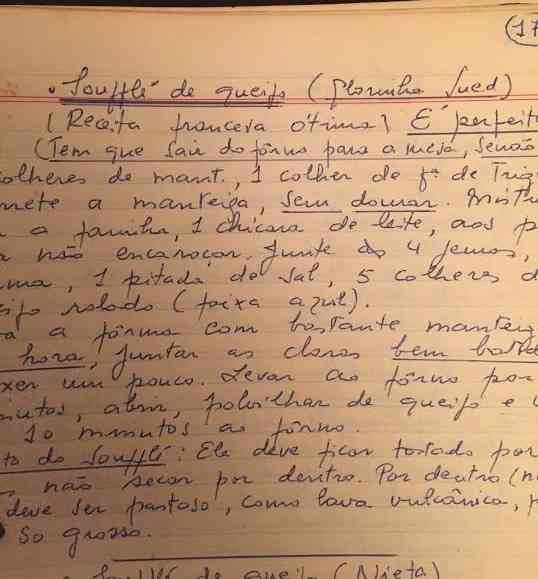 (17
• Soufflé de queijo (Florinha Sued)
(Receita francesa ótima) É perfeit
(Tem que sair do fôrno para a mesa, senão
olheres de mant., 1 colher de fª de Trig
mete a manteiga, sem dourar. Mist
a a farinha, 1 chícara de leite, aos p
a não encaroçar. Junte as 4 gemas,
uma, 1 pitada de sal, 5 colheres d
eijo ralado (faixa azul).
a a fôrma com bastante manteig
hora, juntar as claras bem bati
exer um pouco. Levar ao fôrno por
inutos, abrir, polvilhar de queijo e
10 minutos ao fôrno.
to do Soufflé: Ele deve ficar tostado por
não secar por dentro. Por dentro (n
deve ser pastoso, como lava vulcânica,
so grosso.
• Soufflé de queijo (Nieta)